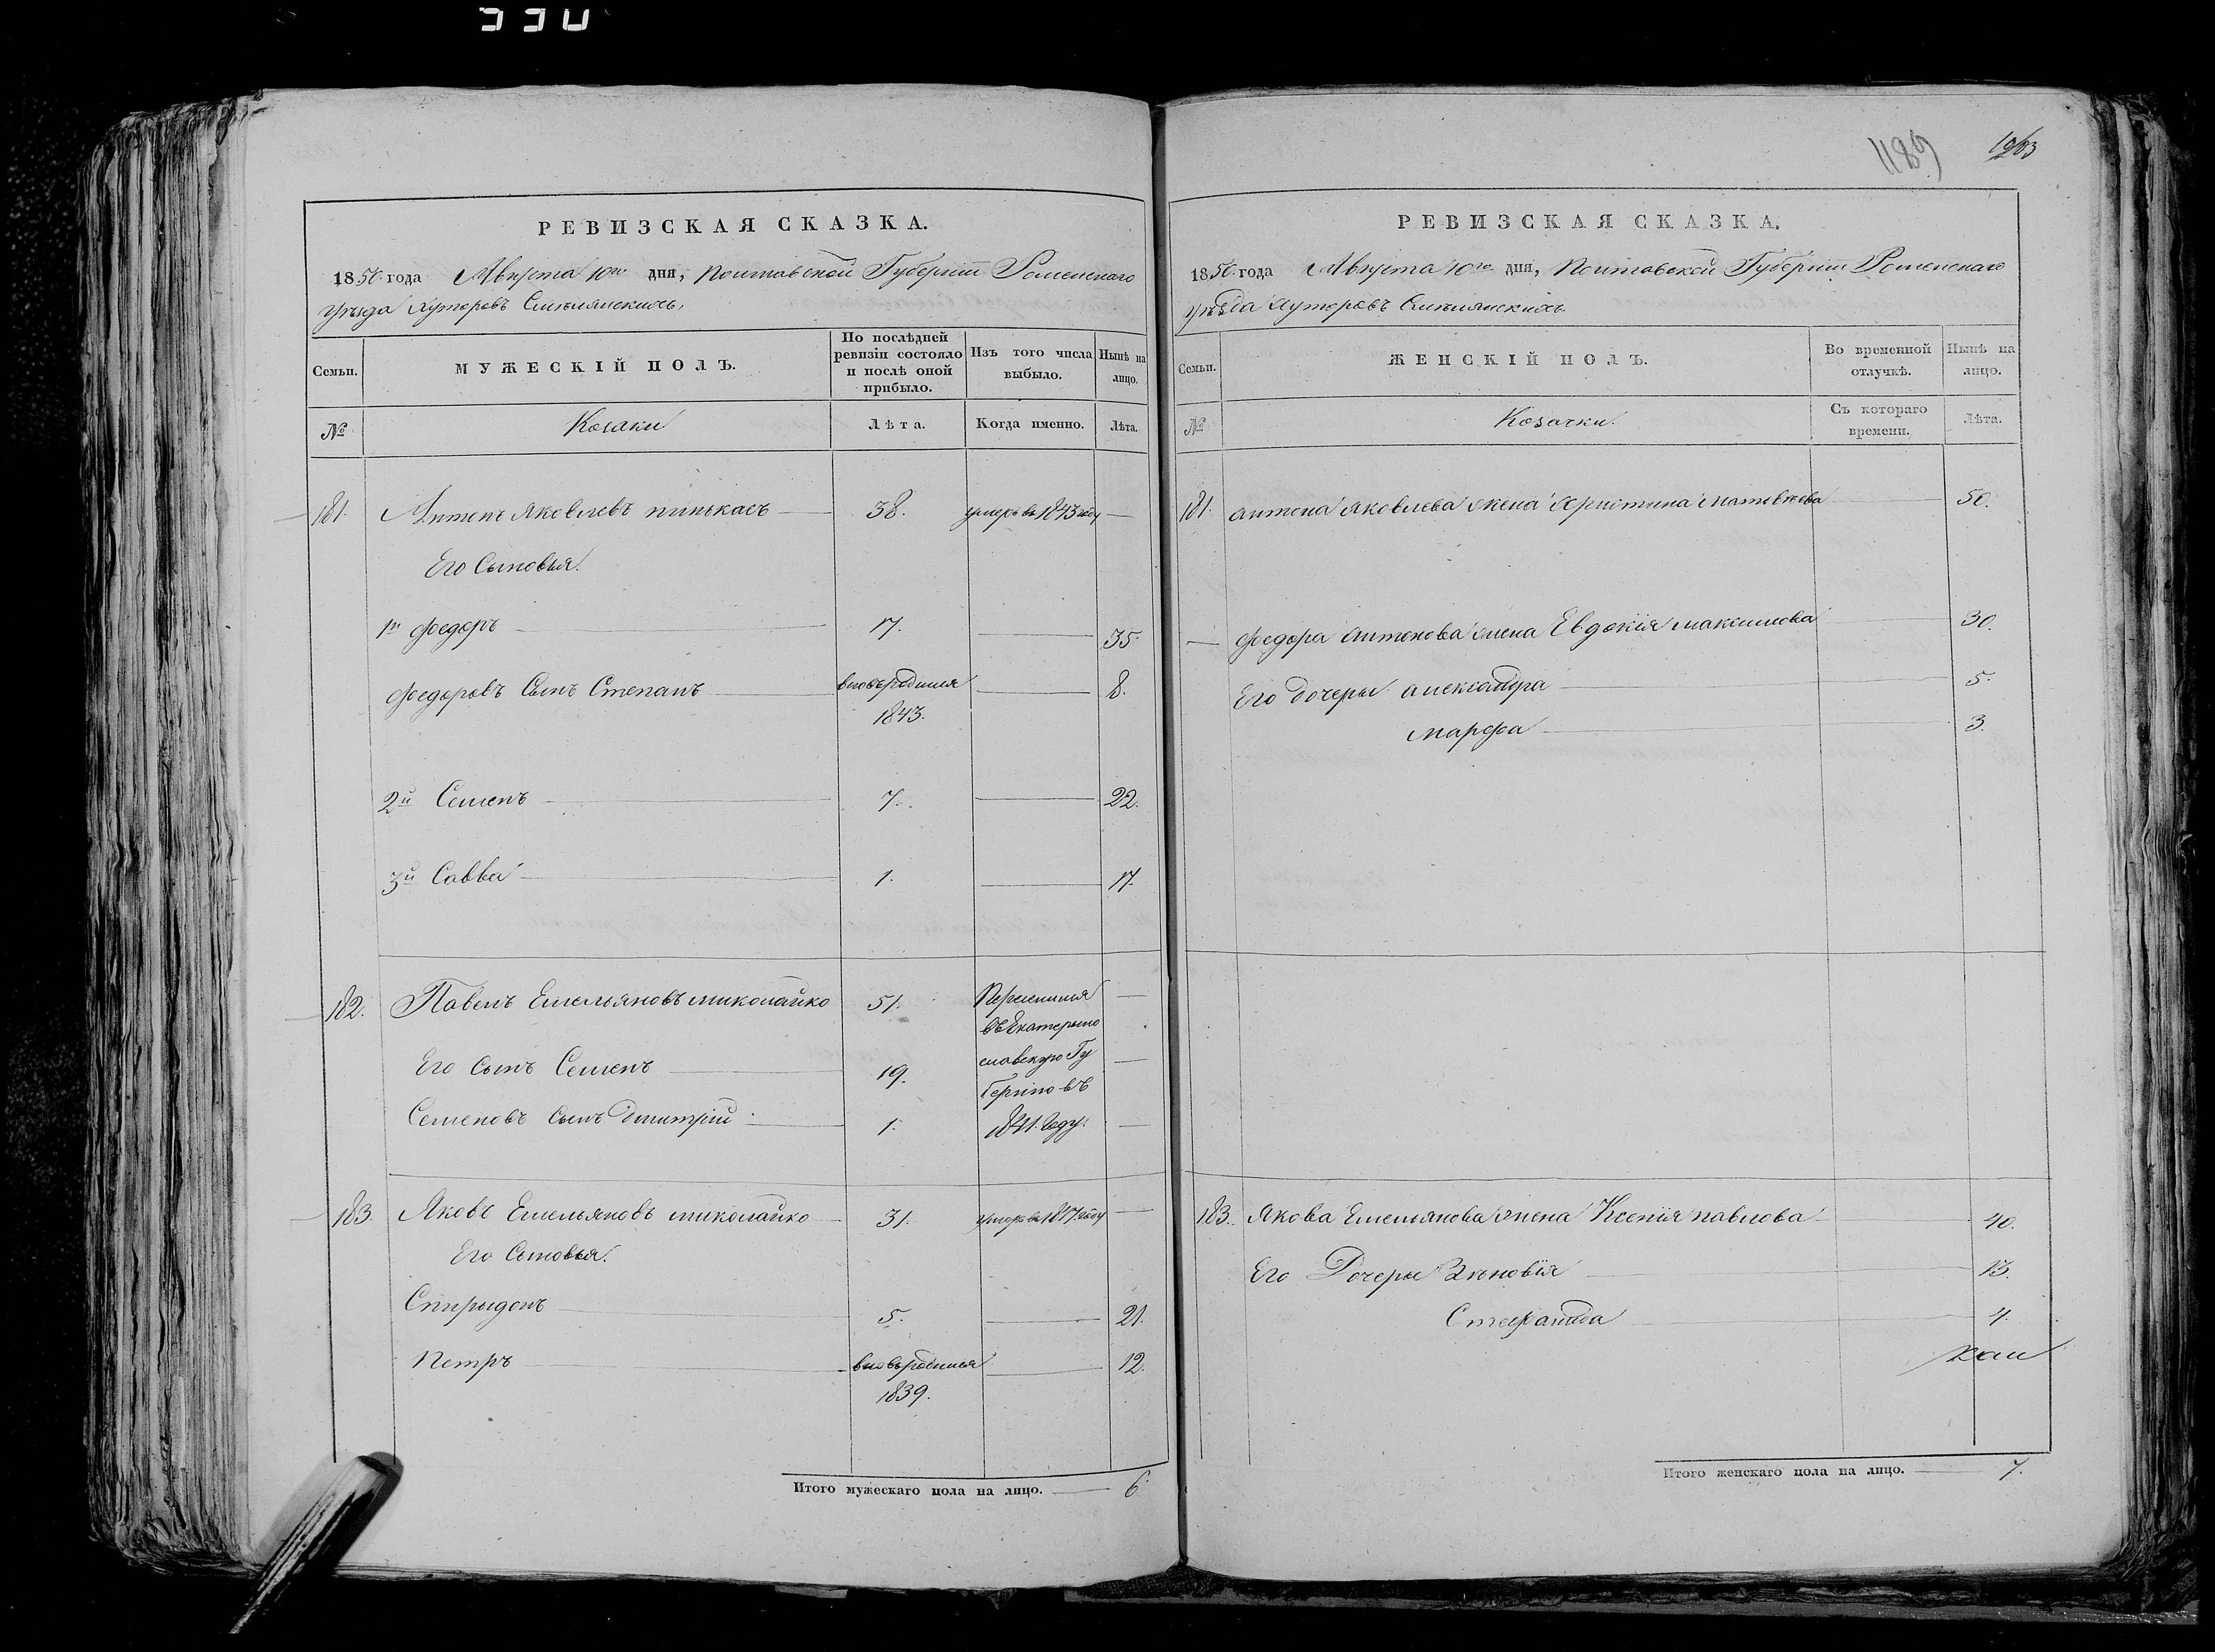 1189
1263
РЕВИЗСКАЯ СКАЗКА.
1850 года Августа 10го дня, Полтавской Губерніи Роменскаго
уезда Хуторовъ
Семьи.
МУЖЕСКІЙ ПОЛЪ.
По послѣдней ревизіи состояло и послѣ оной прибыло.
Изъ того числа выбыло.
Нынѣ на лицо.
№
Козаки
Лѣта.
Когда именно.
Лѣта.
181. Антонъ Яковлевъ 38. умеръ въ 1843 году —
Его Сыновья.
1й Федоръ 17. — 35.
Федоровъ Сынъ Степанъ вновьродился — 8.
1843.
2й Семенъ 7. — 22.
3й Савва 1. — 17.
182. Павелъ Емельяновъ миколайко 51. Переселился —
въ Екатерино
Его сынъ Семенъ 19. славскую Гу —
берню въ
Семеновъ сынъ Дмитрій 1. 1841. Году. —
183. Яковъ Емельяновъ миколайко 31. умеръ въ году —
Его Сыновья.
Спиридонъ 5. — 21.
Петръ вновьродился — 12.
1839.
Итого мужескаго пола на лицо. — 6
РЕВИЗСКАЯ СКАЗКА.
1850 года Августа 10го дня, Полтавской Губерніи Роменскаго
уезда Хуторовъ
Семьи.
ЖЕНСКІЙ ПОЛЪ.
Во временной отлучкѣ.
Нынѣ на лицо.
№
Козачки.
Съ котораго времени.
Лѣта.
181. антона Яковлева жена Христина — 50.
— Федора антонова жена Евдокія максимова — 30.
Его дочеры александра — 5.
марфа — 3.
183. Якова Емельянова жена Ксенія павлова — 40.
Его Дочеры Зѣновія — 13.
— 4.
Итого женскаго пола на лицо. — 7.